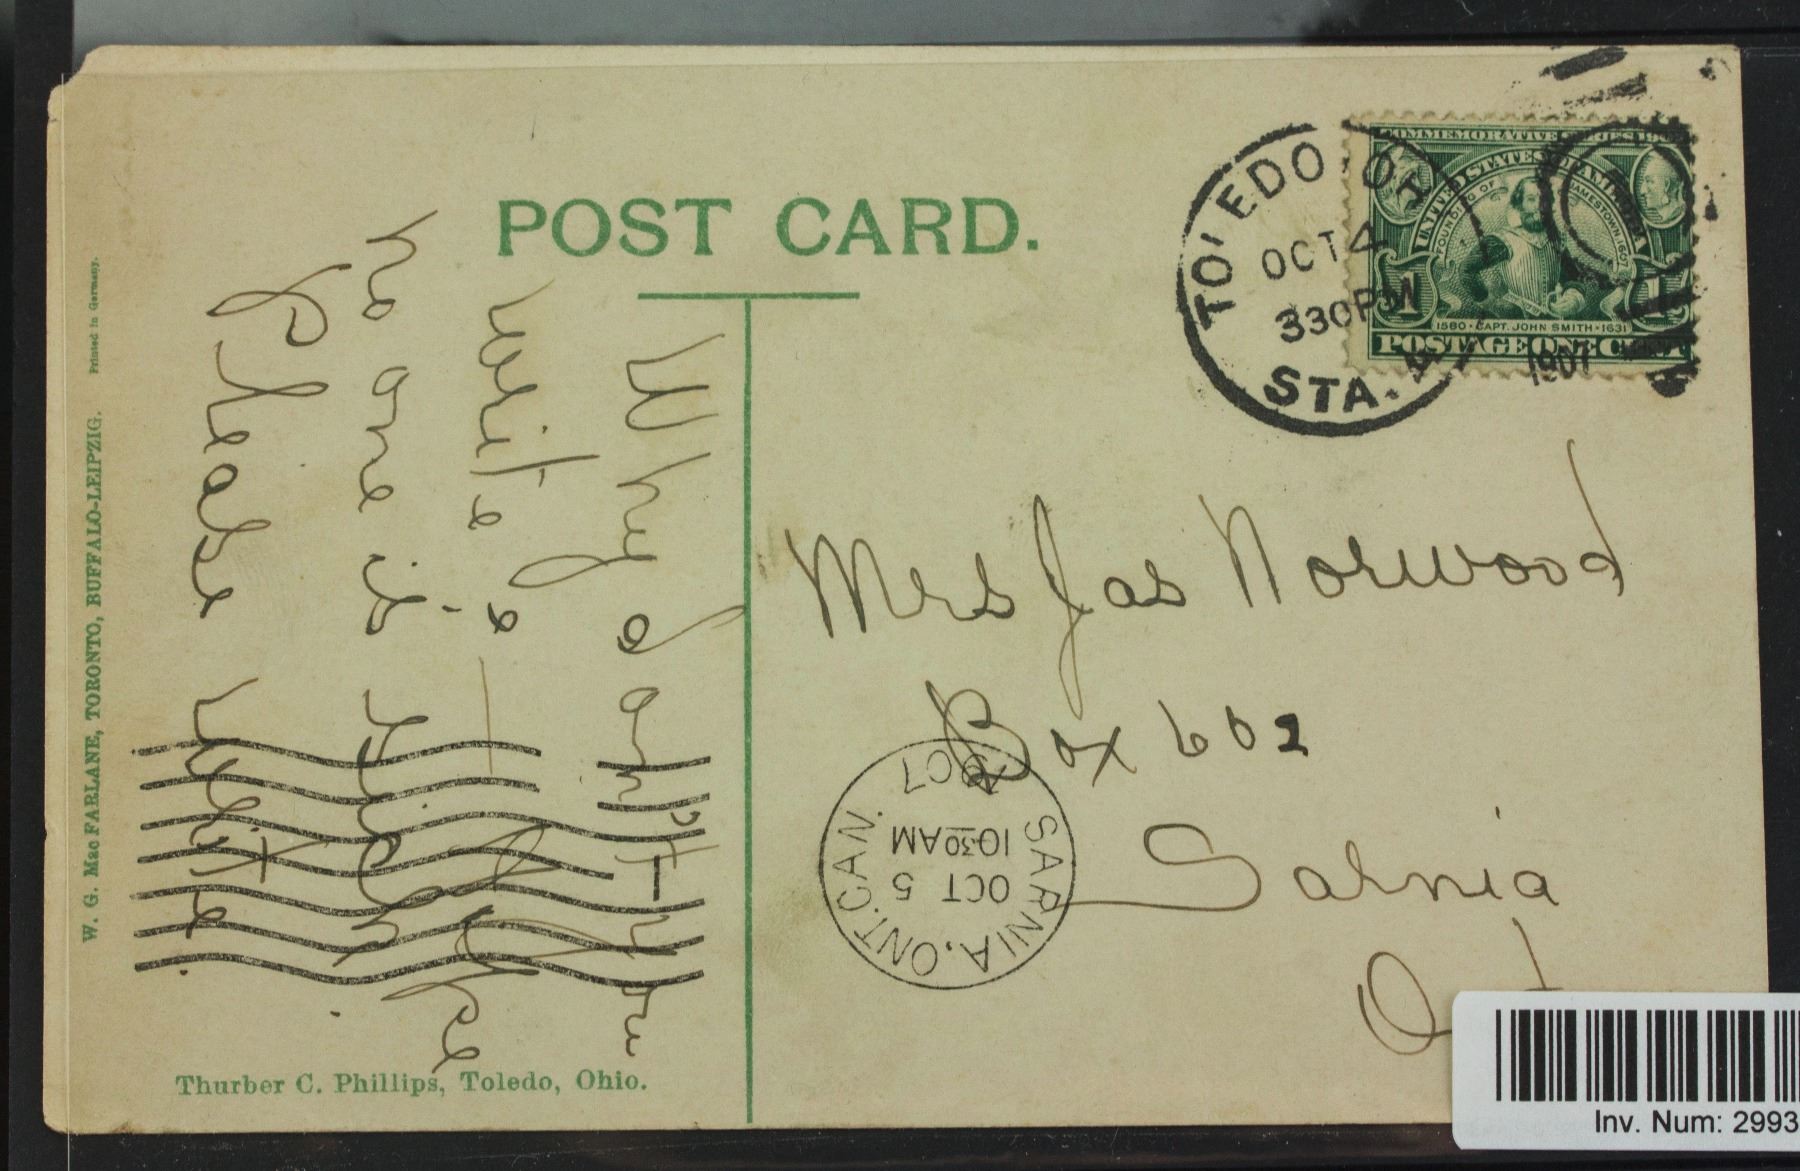 POST CARD.
Why don't you
write. I hope
no one is sick
Please write.
W. G. Mac FARLANE, TORONTO, BUFFALO-LEIPZIG. Printed in Germany.
Thurber C. Phillips, Toledo, Ohio.
TOLEDO, O.
OCT 4
330PM
1907
STA. A
COMMEMORATIVE SERIES 1907
UNITED STATES OF AMERICA
FOUNDING OF JAMESTOWN 1607
1580 · CAPT. JOHN SMITH · 1631
1 1
POSTAGE ONE CENT
Mrs Jas Norwood
Box 602
Sarnia
SARNIA, ONT. CAN.
OCT 5
10 30 AM
07
Inv. Num: 2993